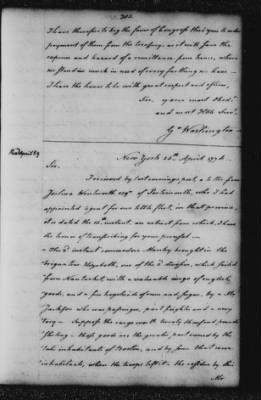 302.
I have therefore to beg the favor of Congress that you to order
payment of them from the treasury, as it will save the
expence and hazard of a remittance from hence, where
we stand in much in need of every farthing we have —
I have the honor to be with great respect and esteem,
Sir, your most Obedt.
and most Hble Servt.
Go Washington
Read April 29
New York 25th April 1776.
Sir,
I received by last evenings post, a letter from
Joshua Wentworth esqr of Portsmouth, who I had
appointed agent for our little fleet, in that province,
it is dated the 15th instant, an extract from which, I have
the honor of transcribing for your perusal —
instant commodore Manley brought in the
brigantine Elizabeth, one of the 2d division, which sailed
from Nantasket, with a valuable cargo of english
goods, and a few hogsheads of rum and sugar, by a Mr
Jackson who was passenger, part freighter and a very
Tory — Suppose the cargo worth twenty thousand pounds
Sterling — these goods are the greater part owned by the
late inhabitants of Boston, and by some that were
inhabitants, when the troops left it — the residue by this
Mr